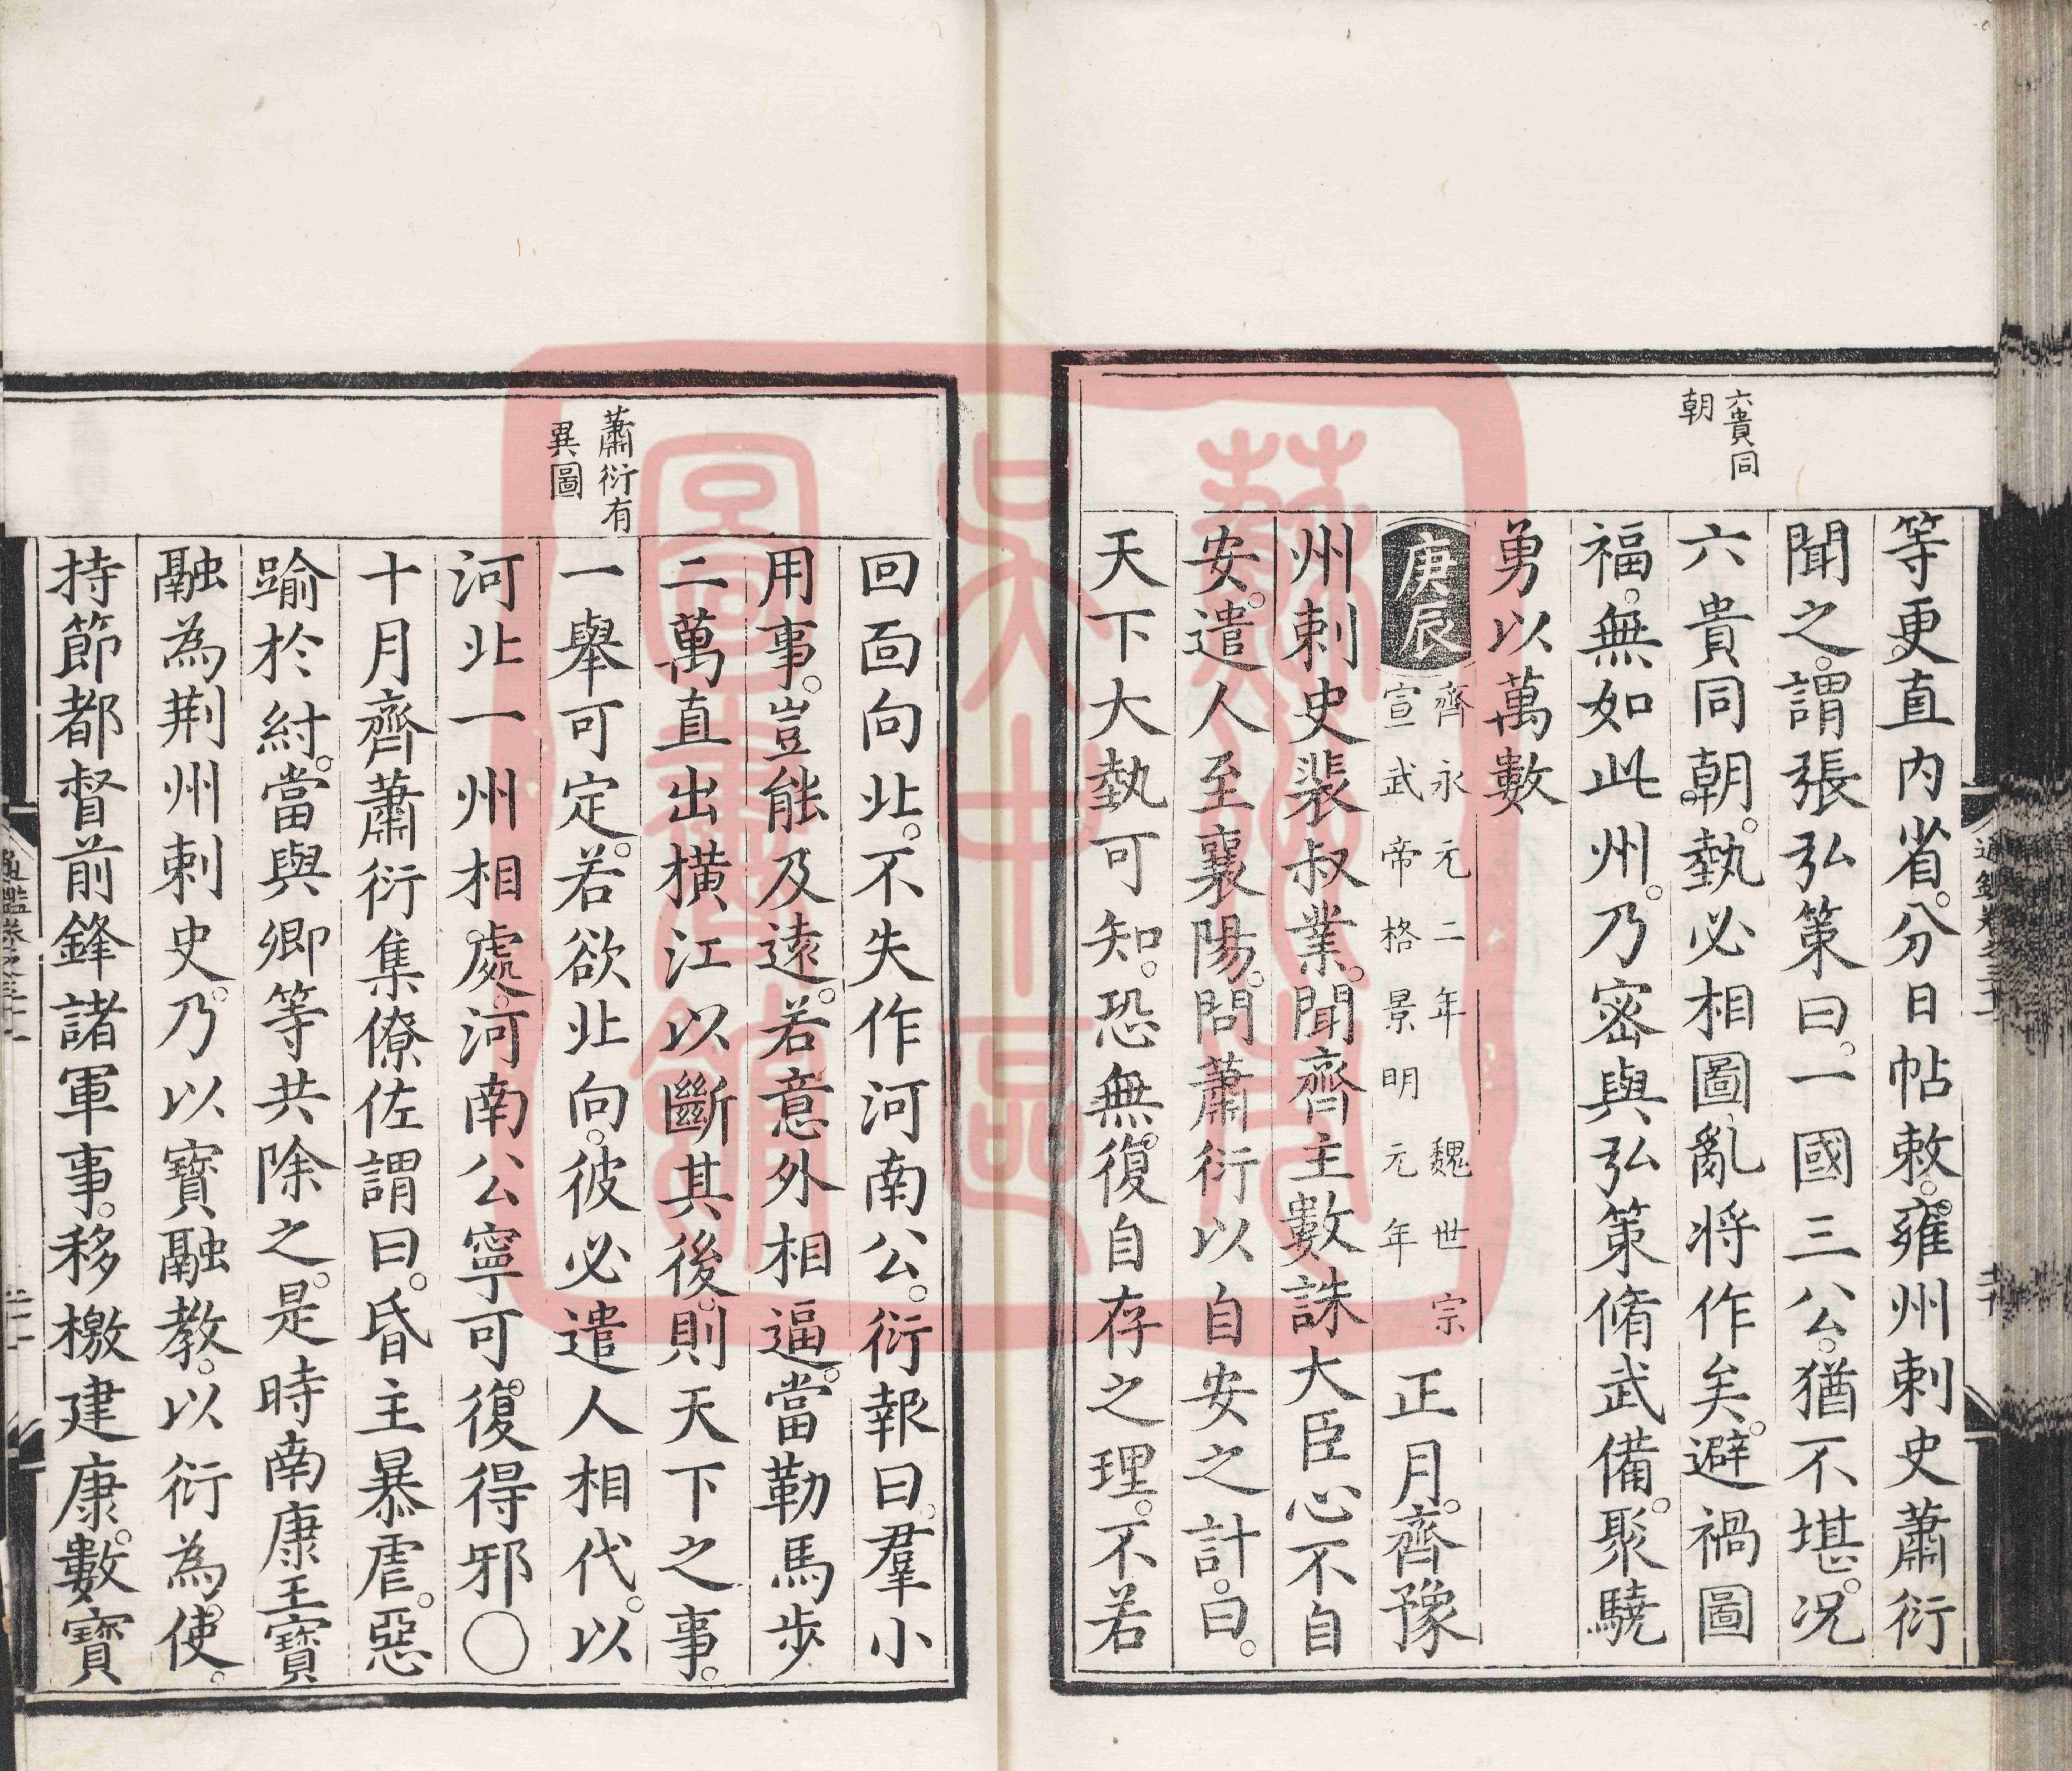 六貴同
朝
等更直内省。分日帖敕。雍州刺史蕭衍
聞之。謂張弘策曰。一國三公。猶不堪。况
六貴同朝。埶必相圖。亂将作矣。避禍圖
福。無如此州。乃宻與弘策脩武備。聚驍
勇以萬數
庚辰 齊永元二年 魏世宗
宣武帝格景明元年
正月。齊豫
州刺史裴叔業。聞齊主數誅大臣心不自
安。遣人至襄陽。問蕭衍以自安之計。曰。
天下大埶可知。恐無復自存之理。不若
蕭衍有
異圖
回面向北。不失作河南公。衍報曰。羣小
用事。豈能及遠。若意外相逼。當勒馬步
二萬直出橫江以斷其後。則天下之事。
一舉可定。若欲北向。彼必遣人相代。以
河北一州相處。河南公寧可復得邪○
十月齊蕭衍集僚佐謂曰。昏主暴虐。惡
踰於紂。當與卿等共除之。是時南康王寶
融為荆州刺史。乃以寶融教。以衍為使。
持節都督前鋒諸軍事。移檄建康。數寶
藝風堂
吳中區
圖書館